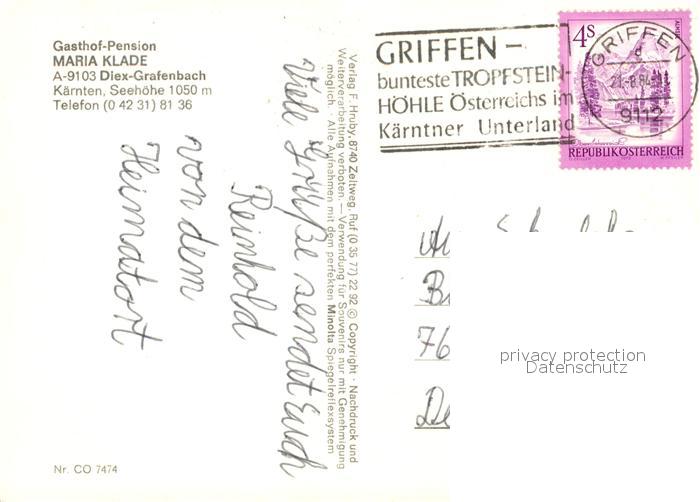 Gasthof-Pension
MARIA KLADE
A-9103 Diex-Grafenbach
Kärnten, Seehöhe 1050 m
Telefon (0 42 31) 81 36
Viele Grüße sendet Euch
Reinhold
von dem
Heimatort
Nr. CO 7474
Verlag F. Hruby, 8740 Zeltweg, Ruf (0 35 77) 22 92 © Copyright · Nachdruck und
Weiterverarbeitung verboten. — Verwendung für Souvenirs nur mit Genehmigung
möglich. · Alle Aufnahmen mit dem perfekten Minolta Spiegelreflexsystem
GRIFFEN –
bunteste TROPFSTEIN-
HÖHLE Österreichs im
Kärntner Unterland
4S
REPUBLIK ÖSTERREICH
GRIFFEN
d
9112
76
privacy protection
Datenschutz